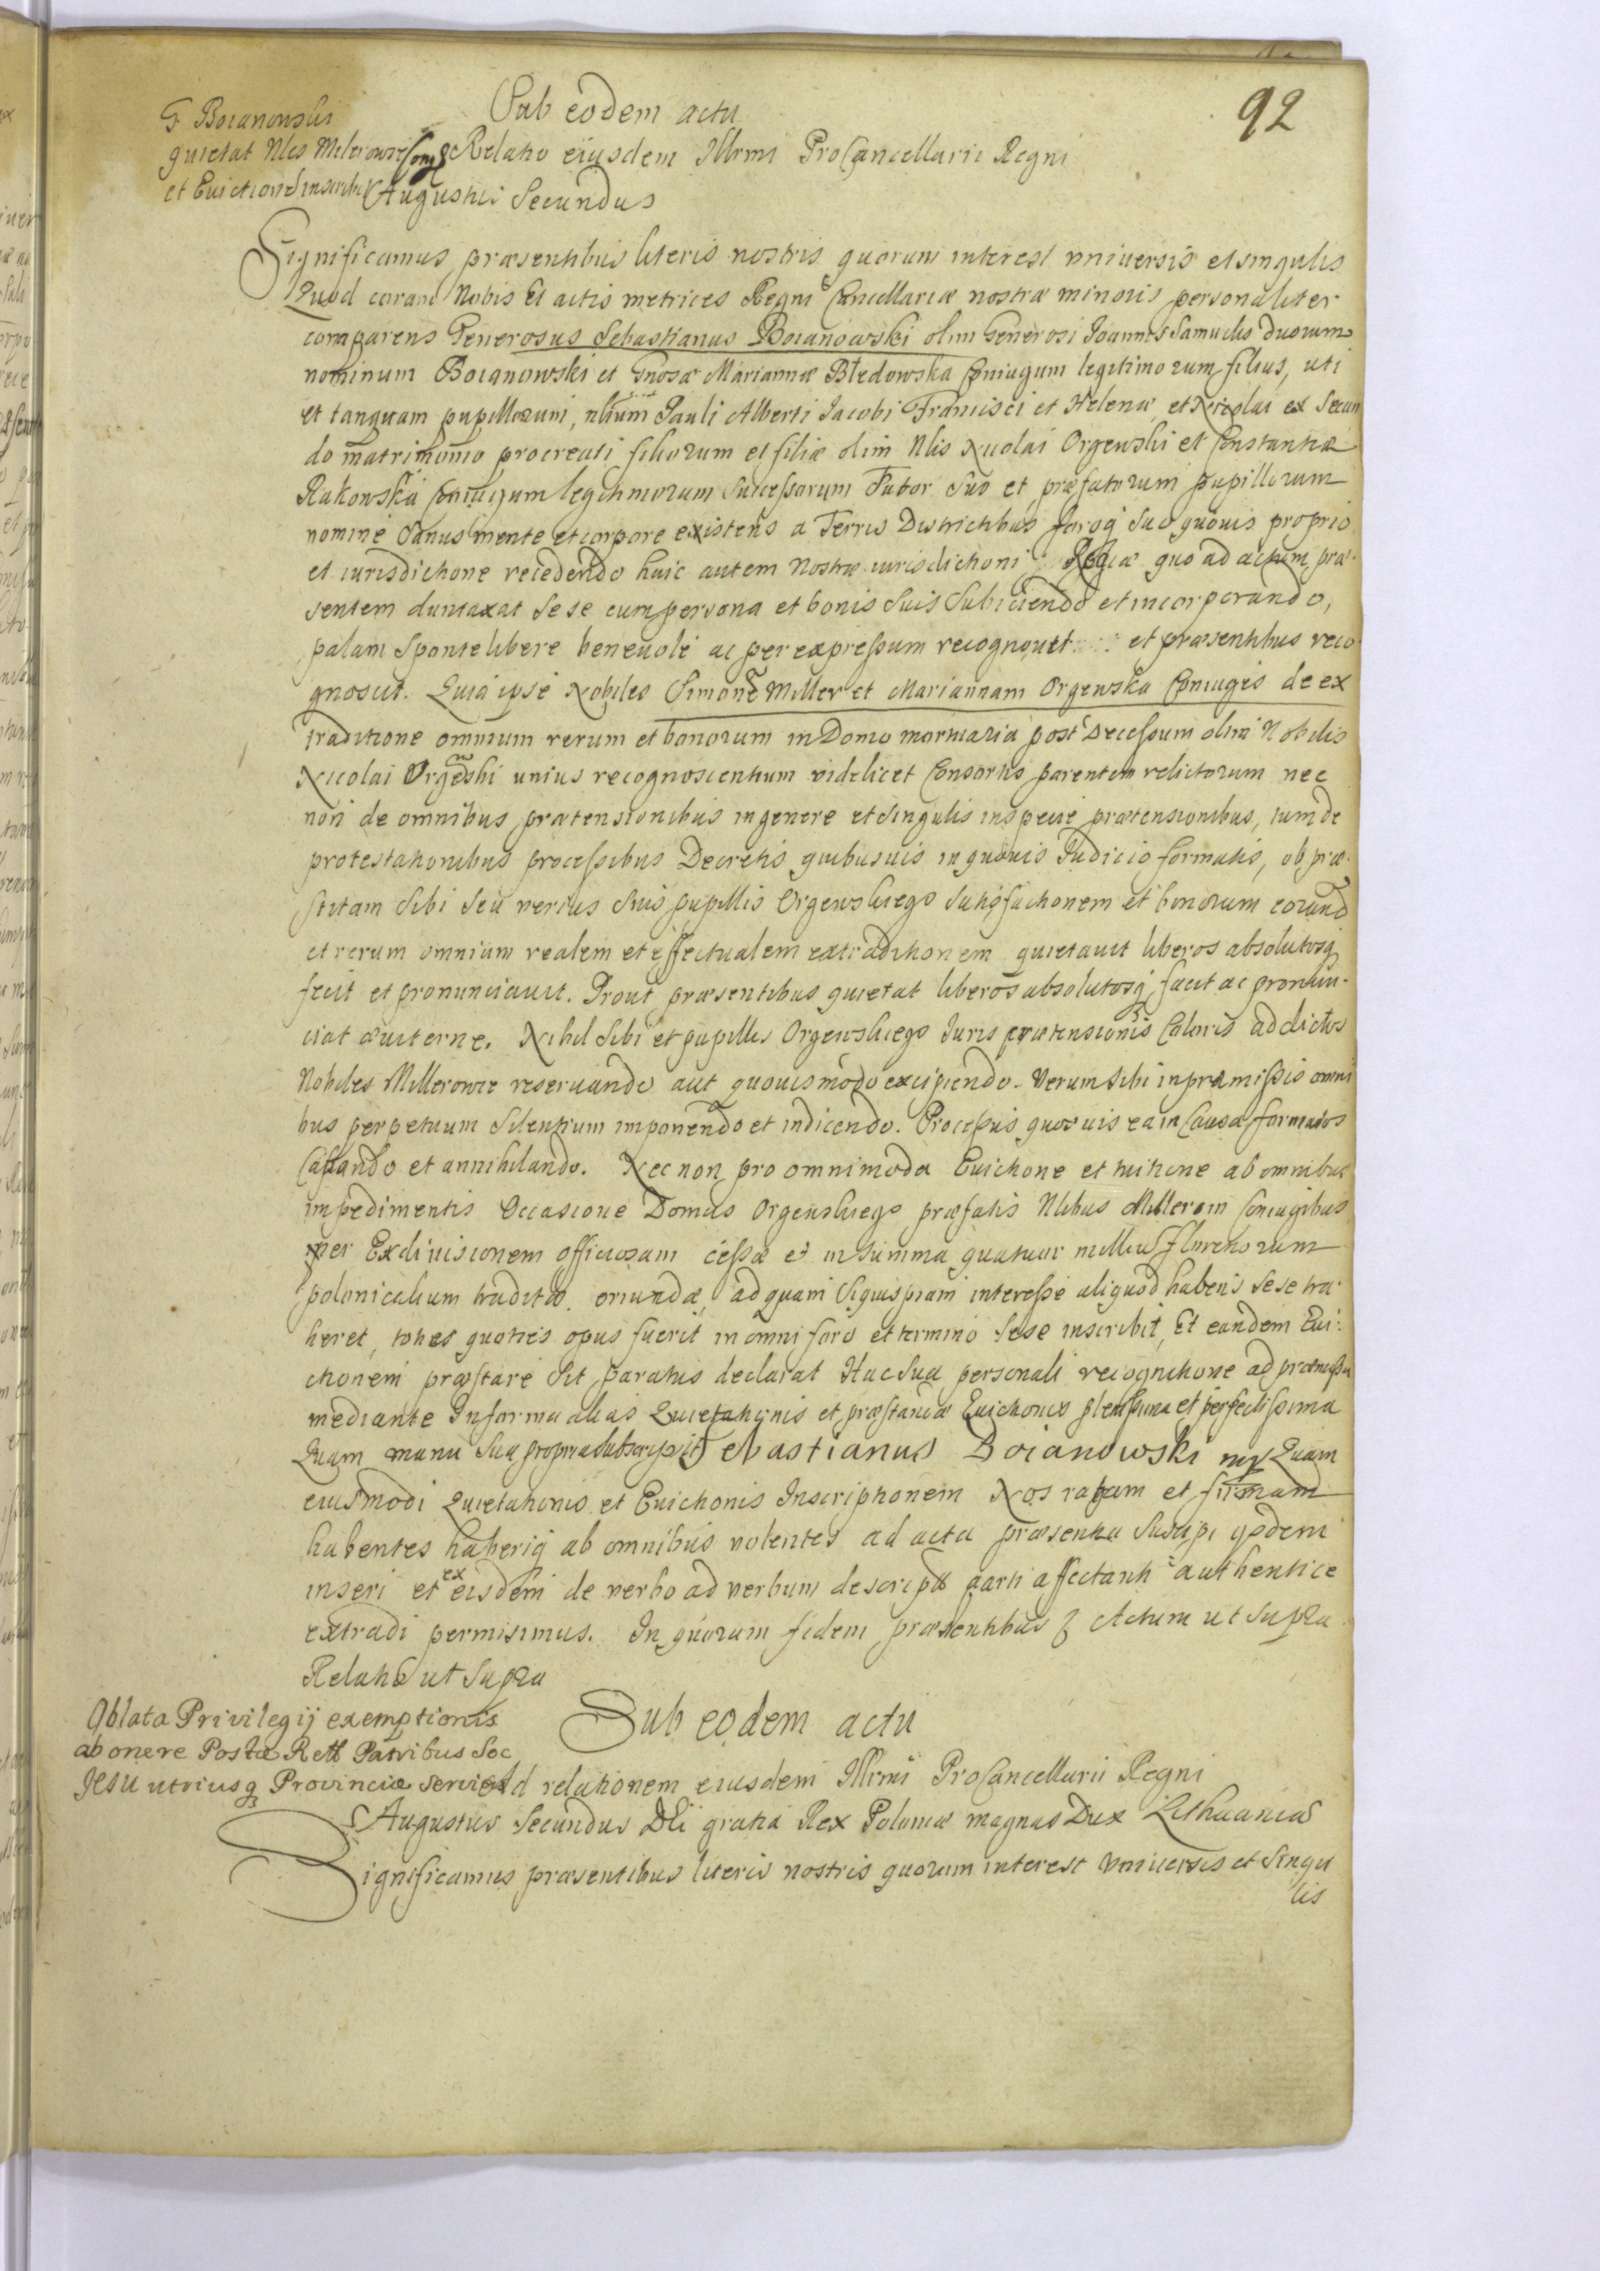 92
Sub eodem actu
G Boianowski
quietat Nles Milerowie Conjges
et Evictione Inscribit
Relatio eiusdem Illrmi ProCancellarii Regni
Augustus Secundus
Significamus præsentibus literis nostris quorum interest universis et singulis
Quod coram Nobis et actis metrices Regni Cancellariæ nostræ minoris personaliter
comparens Generosus Sebastianus Boianowski olim Generosi Joannis Samuelis duorum
nominum Boianowski et Gnosæ Mariannæ Błedowska Coniugum legitimorum filius, uti
et tanquam pupillorum, nlium Pauli Alberti Jacobi Francisci et Helenæ et Nicolai ex Secun
do matrimonio procreati filiorum et filiæ olim Nlis Nicolai Orgewski et Constantiæ
Rakowska Coniugum legitimorum Successorum Tutor Suo et præfatorum pupillorum
nomine Sanus mente et corpore existens a Terris Districtibus foroq Suo quovis proprio
et iurisdictione recedendo huic autem Nostræ iurisdictioni Regiæ quo ad actum præ-
sentem duntaxat Sese cum persona et bonis Suis Subiiciendo et incorporando,
palam Sponte libere benevole ac per expressum recognovit et præsentibus reco
gnoscit. Quia ipse Nobiles Simone Miller et Mariannam Orgewska Coniuges de ex
traditione omnium rerum et bonorum in Domo mormaria post Decessum olim Nobilis
Nicolai Orgewski unius recognoscentium videlicet Consortis parentem relictorum nec
non de omnibus prætensionibus in genere et singulis in specie prætensionibus, tum de
protestationibus processibus Decretis quibusvis in quovis Judicio formatis, ob præ-
stitam Sibi Seu verius Suis pupillis Orgewskiego Satisfactionem et bonorum eorund
et rerum omnium realem et effectualem extraditionem quietavit liberos absolutosq
fecit et pronunciavit. Prout præsentibus quietat liberos absolutosq facit ac pronun-
ciat æviterne. Nihil Sibi et pupillis Orgewskiego Juris prætensionis Coloris ad dictos
Nobiles Millerowie reservando aut quovis modo excipiendo. Verum Sibi in præmissis omni
bus perpetuum Silentium imponendo et indicendo. Processus quosvis ea in Causa formatos
Cassando et annihilando. Nec non pro omnimoda Evictione et tuitione ab omnibus
impedimentis Occasione Domus Orgewskiego præfatis Nlibus Millerom Coniugibus
per Exdivisionem officiosam cessæ et in summa quatuor millium florenorum
polonicalium traditæ oriundæ, ad quam Siquispiam interesse aliquod habens Sese tra
heret, toties quoties opus fuerit in omni foro et termino Sese inscribit, Et eandem Evi-
ctionem præstare Sit paratus declarat Hac Sua personali recognitione ad præmissa
mediante In forma alias Quietationis et præstandæ Evictionis plenissima et perfectissima
Quam manu Sua propria subscripsit Sebastianus Boianowski mp Quam
eiusmodi Quietationis et Evictionis Inscriptionem Nos ratam et firmam
habentes haberiq ab omnibus volentes ad acta præsentia Suscipi ijsdem
inseri et ex eisdem de verbo ad verbum descripta parti affectanti authentice
extradi permisimus. In quorum fidem præsentibus Actum ut Supra
Relatio ut Supra
Oblata Privilegij exemptionis
ab onere Postæ Rell Patribus Soc
JESU utriusq Provinciæ serviens
Sub eodem actu
Ad relationem eiusdem Illrmi ProCancellarii Regni
Augustus Secundus Dei gratia Rex Poloniæ magnus Dux Lithuaniæ
Significamus præsentibus literis nostris quorum interest Universis et Singu
lis